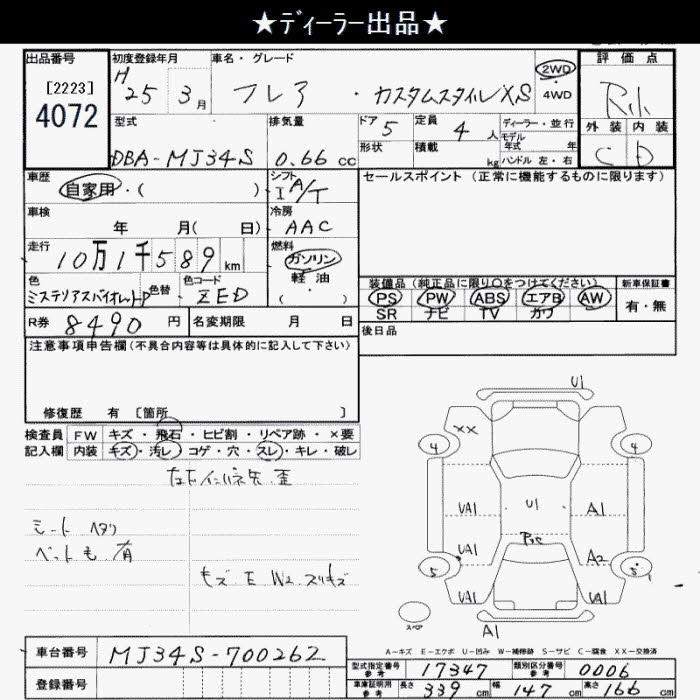 ★ディーラー出品★
出品番号 初度登録年月 車名・グレード 2WD 評価点
[2223] H 25 3月 フレア・カスタムスタイルXS 4WD R
4072
型式 排気量 ドア 5 定員 4人 ディーラー・並行 外装 内装
モデル年式 年
DBA-MJ34S 0.66cc 形状 積載 kg ハンドル 左・右 C D
車歴 シフト セールスポイント (正常に機能するものに限ります)
自家用・( ) IA/T
車検 冷房
年 月( 日) AAC
走行 燃料
10万1千589km ガソリン
軽油
色 色替 色コード 装備品(純正品に限り○をつけてください) 新車保証書
ミステリアスバイオレットP ZED ( ) PS PW ABS エアB AW 有・無
SR ナビ TV カワ
R券 8490円 名変期限 月 日 後日品
注意事項申告欄(不具合内容等は具体的に記入して下さい)
修復歴 有 [箇所 ]
検査員 FW キズ・飛石・ヒビ割・リペア跡・×要
記入欄 内装 キズ・汚レ・コゲ・穴・スレ・キレ・破レ
シート ヘタリ
キズ E W2 スリキズ
U1
XX
4 4
UA1 U1 A1
UA1 A2
5 5
UA1 UA1
スペア
A1
A-キズ E-エクボ U-凹み W-補修跡 S-サビ C-腐食 XX-交換済
車台番号 MJ34S-700262
型式指定番号 参考 17347 類別区分番号 参考 0006
登録番号 車庫証明用 参考 長さ 339cm 幅 147cm 高さ 166cm